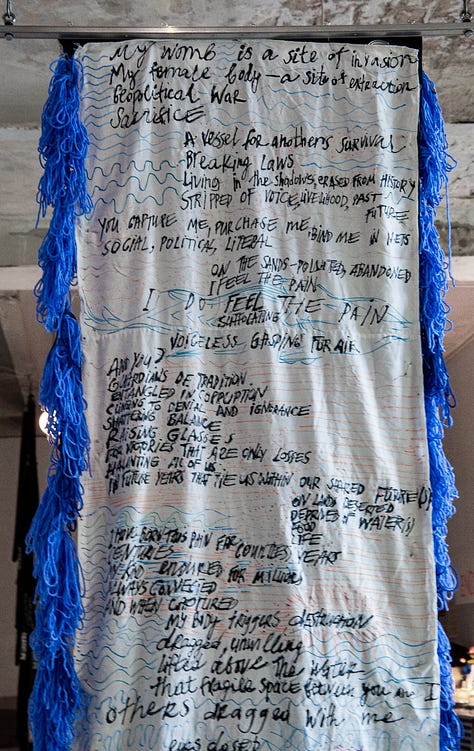 My womb is a site of invasion
My female body – a site of extraction
Geopolitical War
Sacrifice
A vessel for another's survival
Breaking Laws
Living in the shadows, erased from history
STRIPPED OF VOICE, LIVELIHOOD, PAST
FUTURE
YOU CAPTURE ME, PURCHASE ME, BIND ME IN NETS
SOCIAL, POLITICAL, LITERAL
ON THE SANDS – POLLUTED, ABANDONED
I FEEL THE PAIN
I DO FEEL THE PAIN
SUFFOCATING
VOICELESS GASPING FOR AIR
AND YOU?
GUARDIANS OF TRADITION.
ENTANGLED IN CORRUPTION
CLINGING TO DENIAL AND IGNORANCE
SHATTERING BALANCE
RAISING GLASSES
FOR VICTORIES THAT ARE ONLY LOSSES
HAUNTING ALL OF US
IN FUTURE YEARS THAT TIE US WITHIN OUR SHARED FUTURE(S)
ON LAND DESERTED
DEPRIVED OF WATER(S)
FOOD
LIFE
I HAVE BORN THIS PAIN FOR COUNTLESS YEARS
CENTURIES
ENDURED FOR MILLIONS
ALWAYS CONNECTED
AND WHEN CAPTURED
MY BODY TRIGGERS DESTRUCTION
dragged, unwilling
lifted above the water
that fragile space between you and I
others dragged with me